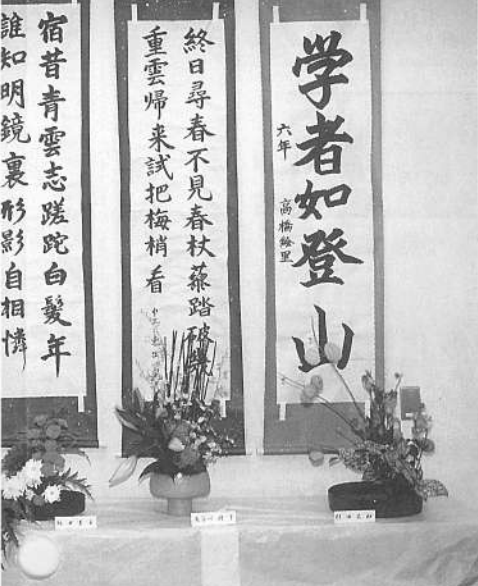 学者如登山
六年 高橋絵里
終日尋春不見春杖藜踏破幾
重雲帰来試把梅梢看
宿昔青雲志蹉跎白髪年
誰知明鏡裏形影自相憐